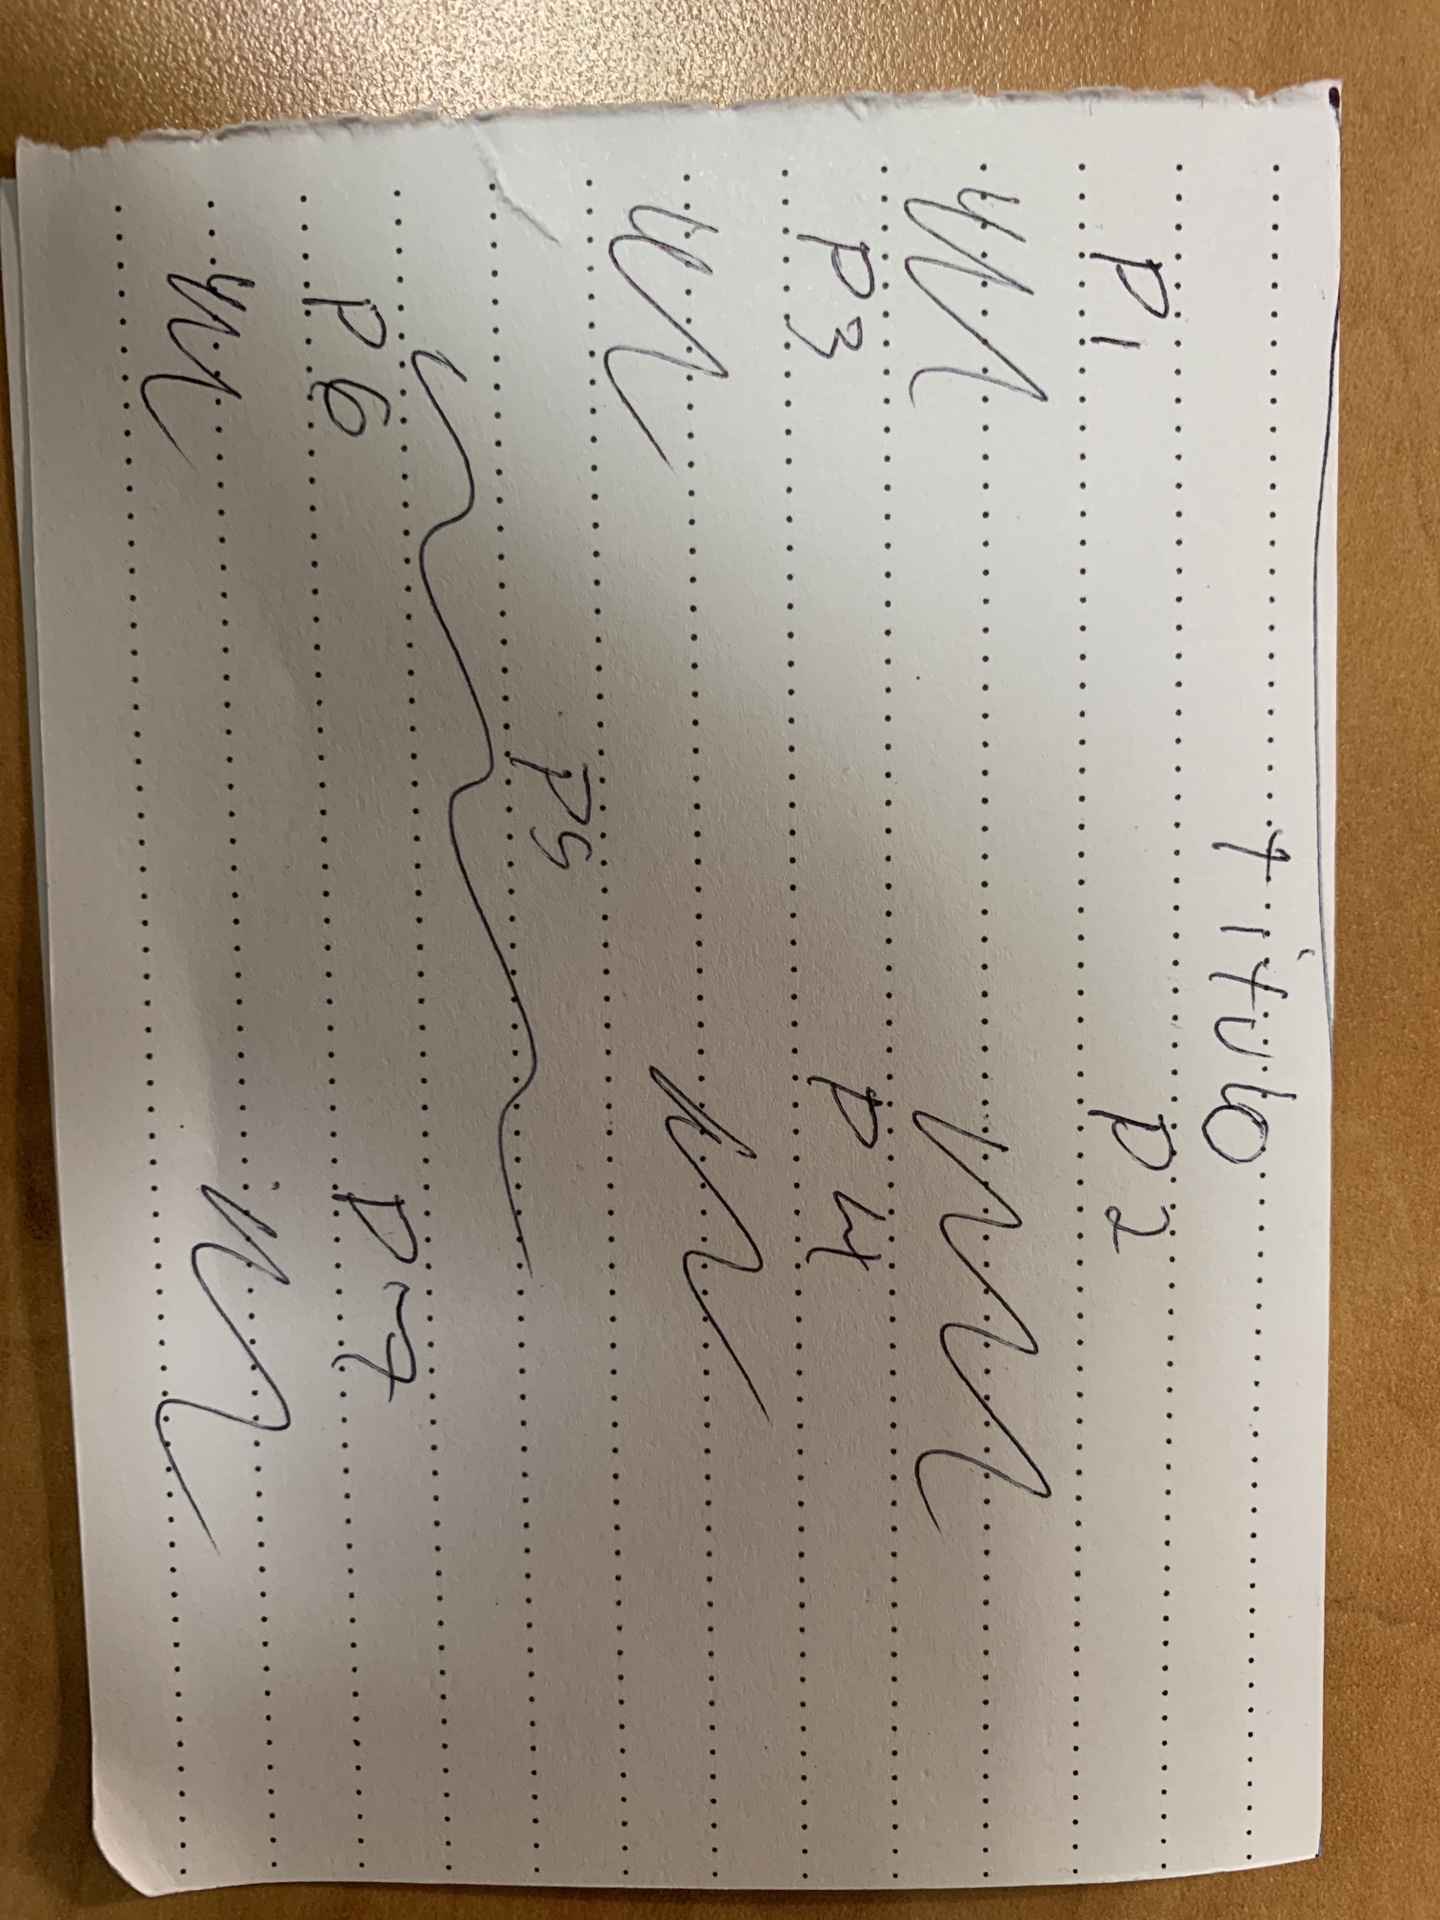 titulo
P1 P2
P3 P4
P5
P6 P7